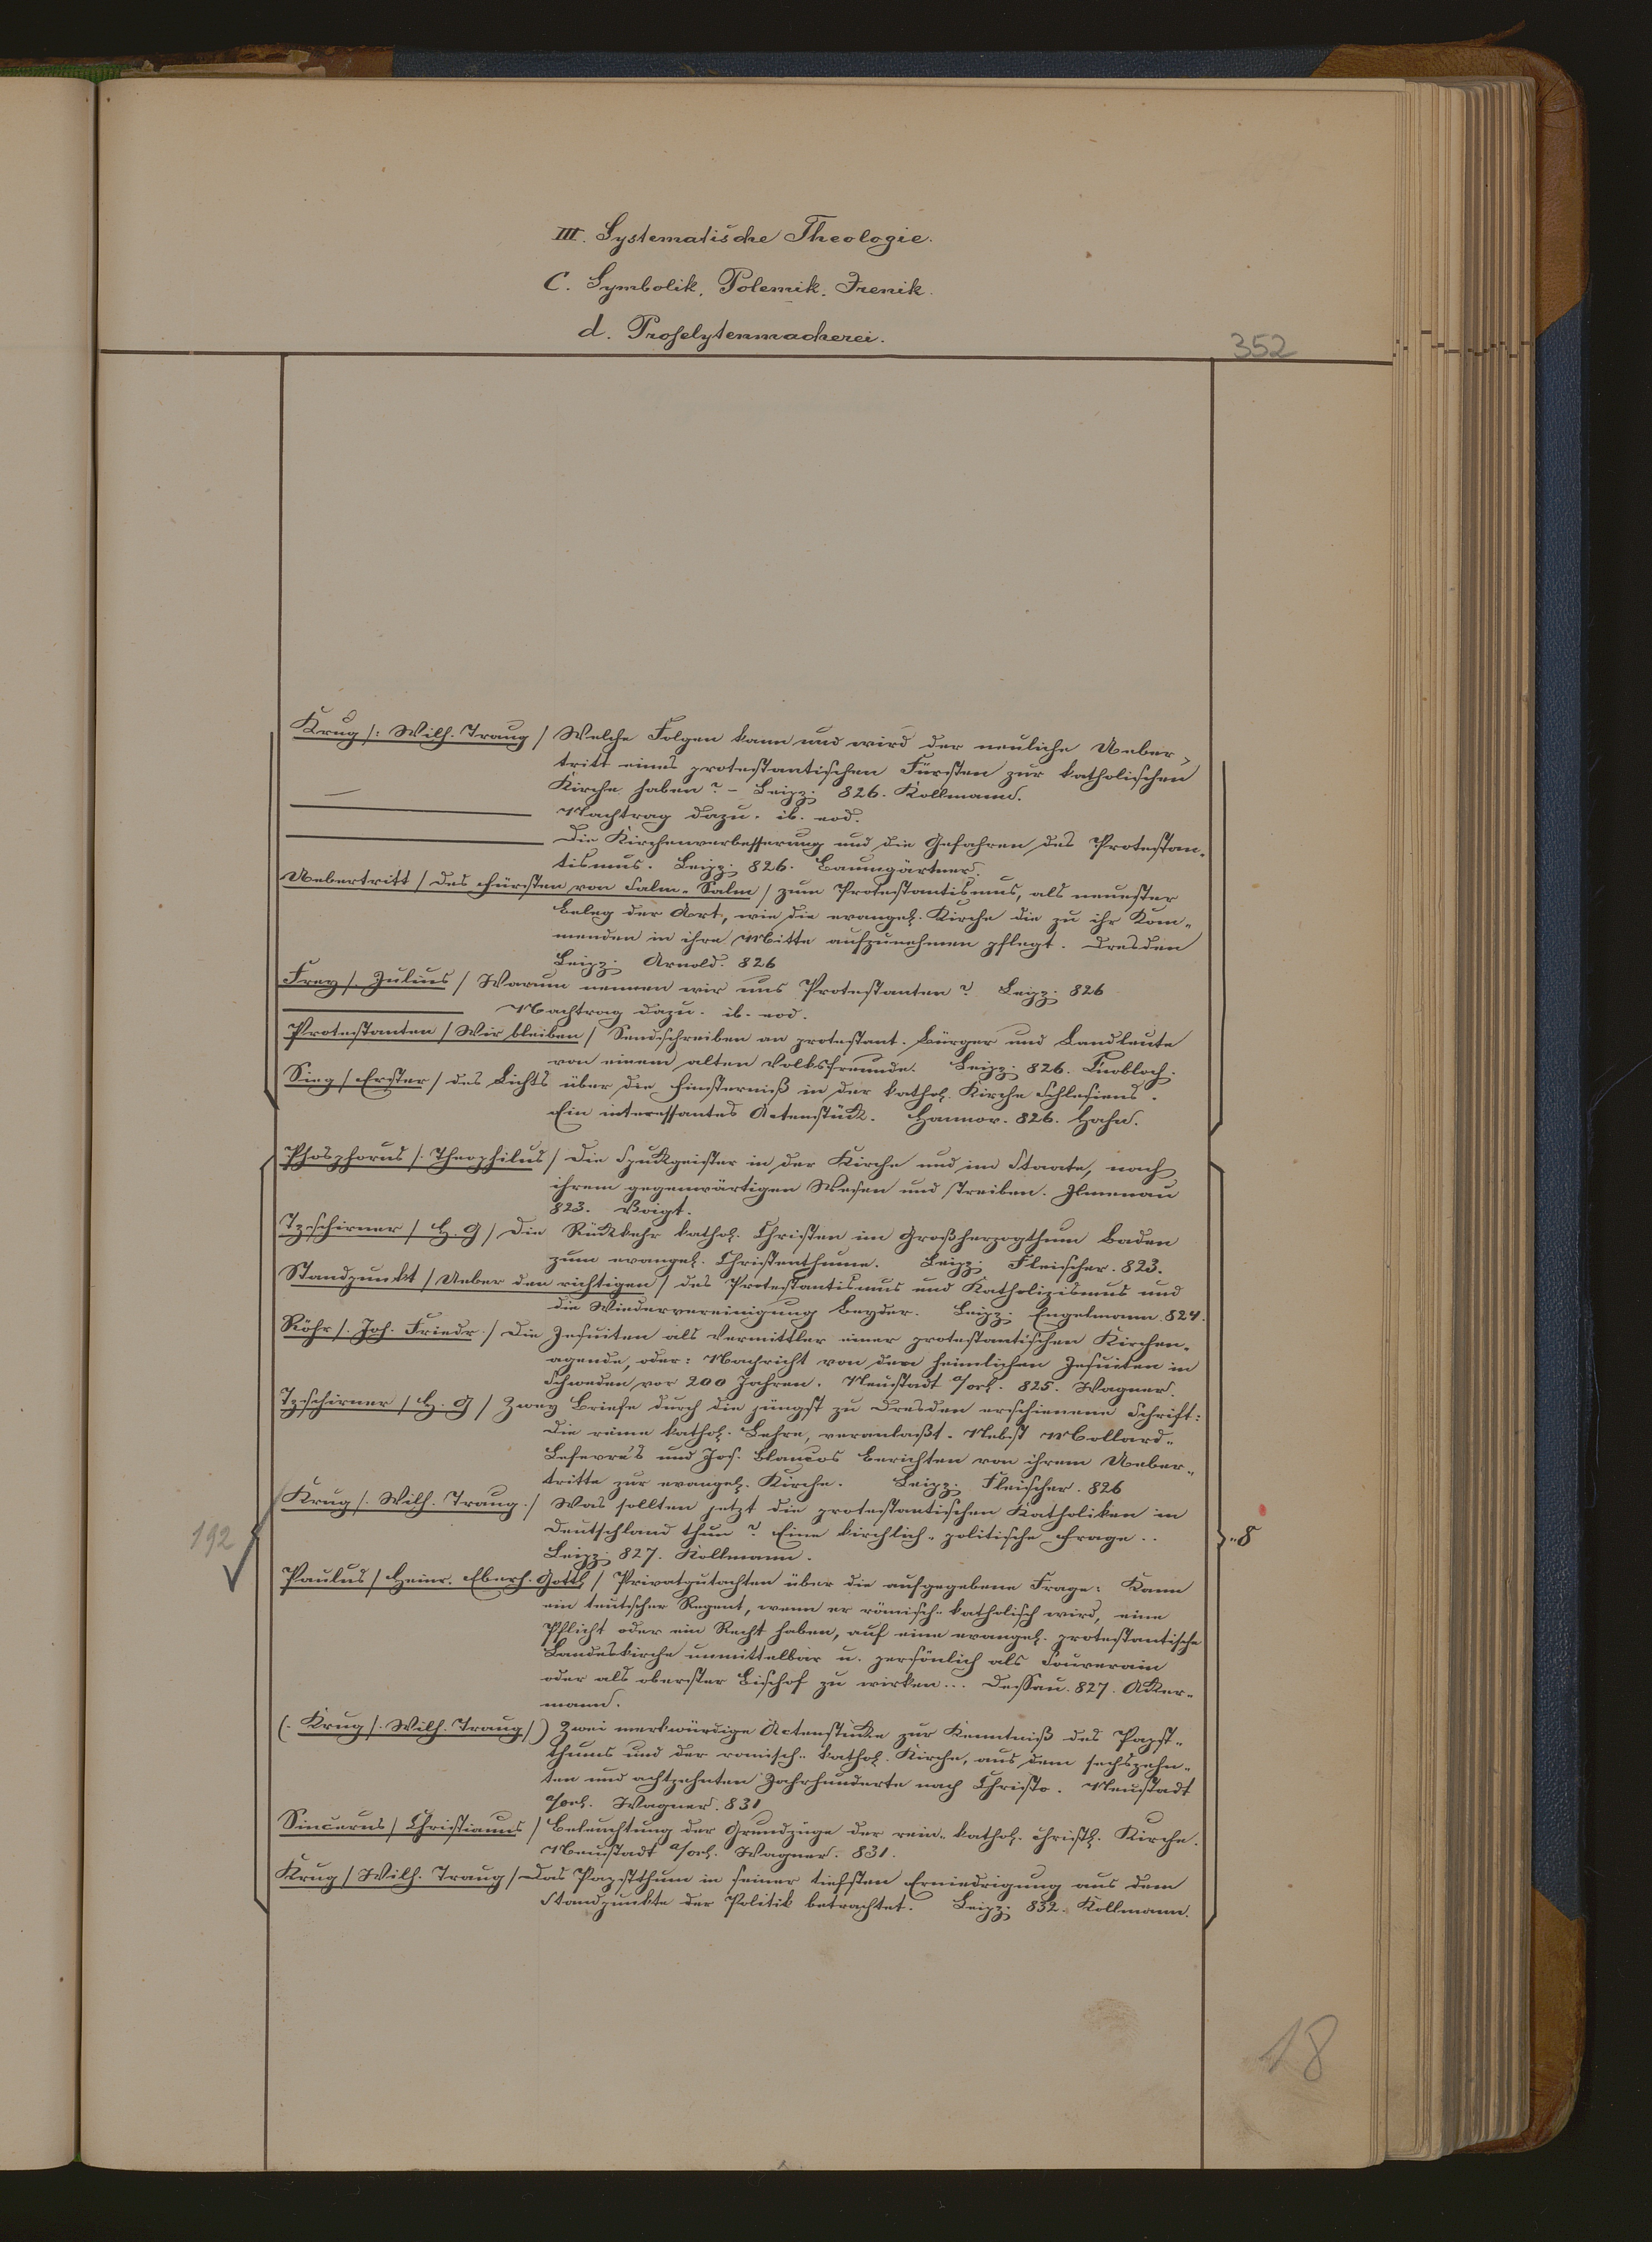 III. Systematische Theologie.
C. Symbolik. Polemik. Irenik.
d. Proselytenmacherei.
352
Krug /: Wilh. Traug / Welche Folgen kann und wird der neuliche Ueber-
tritt eines protestantischen Fürsten zur katholischen
Kirche haben? – Leipz: 826. Kollmann.
Nachtrag dazu. ib. eod.
Die Kirchenverbesserung und die Gefahren des Protestan-
tismus. Leipz: 826. Baumgärtner.
Uebertritt / des Fürsten von Salm-Salm / zum Protestantismus, als neuester
Beleg der Art, wie die evangel. Kirche die zu ihr Kom-
menden in ihre Mitte aufzunehmen pflegt. Dresden
Leipz: Arnold. 826
Frey /. Julius / Warum nennen wir uns Protestanten? Leipz: 826
Nachtrag dazu. ib. eod.
Protestanten / Wir bleiben / Sendschreiben an protestant. Bürger und Landleute
von einem alten Volksfreunde. Leipz: 826. Knobloch.
Sieg / Erster / des Lichts über die Finsterniß in der kathol. Kirche Schlesiens.
Ein interessantes Actenstük. Hannov. 826. Hahn.
Phosphorus /. Theophilus / Die Spukgeister in der Kirche und im Staate, nach
ihrem gegenwärtigen Wesen und Treiben. Ilmenau
823. Voigt.
Tzschirner / H. G / Die Rükkehr kathol. Christen im Großherzogthum Baden
zum evangel. Christenthume. Leipz: Fleischer. 823.
Standpunkt / Ueber den richtigen / des Protestantismus und Katholizismus und
die Wiedervereinigung beyder. Leipz: Engelmann 824.
Röhr /. Joh. Friedr. / Die Jesuiten als Vermittler einer protestantischen Kirchen-
agende, oder: Nachricht von den heimlichen Jesuiten in
Schweden vor 200 Jahren. Neustadt a/orl. 825. Wagner.
Tzschirner / H. G / Zwey Briefe durch die jüngst zu Dresden erschienene Schrift:
Die reine kathol. Lehre, veranlaßt. Nebst Mollard-
Lefevre's und Jos. Blancos Berichten von ihrem Ueber-
tritte zur evangel. Kirche. Leipz: Fleischer. 826
Krug /. Wilh. Traug. / Was sollten jetzt die protestantischen Katholiken in
Deutschland thun? Eine kirchlich-politische Frage..
Leipz: 827. Kollmann.
192
8
Paulus / Heinr. Eberh. Gottl / Privatgutachten über die aufgegebene Frage: Kann
ein teutscher Regent, wenn er römisch-katholisch wird, eine
Pflicht oder ein Recht haben, auf eine evangel. protestantische
Landeskirche unmittelbar u. persönlich als Souverain
oder als oberster Bischof zu wirken... Dessau. 827. Aker-
mann.
(. Krug /. Wilh. Traug /) Zwei merkwürdige Actenstüke zur Kenntniß des Papst-
thums und der romisch-kathol. Kirche, aus dem sechszehn-
ten und achtzehnten Jahrhunderte nach Christo. Neustadt
a/orl. Wagner. 831
Sincerus / Christianus / Beleuchtung der Grundzüge der rein-kathol. christl. Kirche.
Neustadt a/orl. Wagner. 831.
Krug / Wilh. Traug / Das Papstthum in seiner tiefsten Erniedrigung aus dem
Standpunkte der Politik betrachtet. Leipz: 832. Kollmann.
18